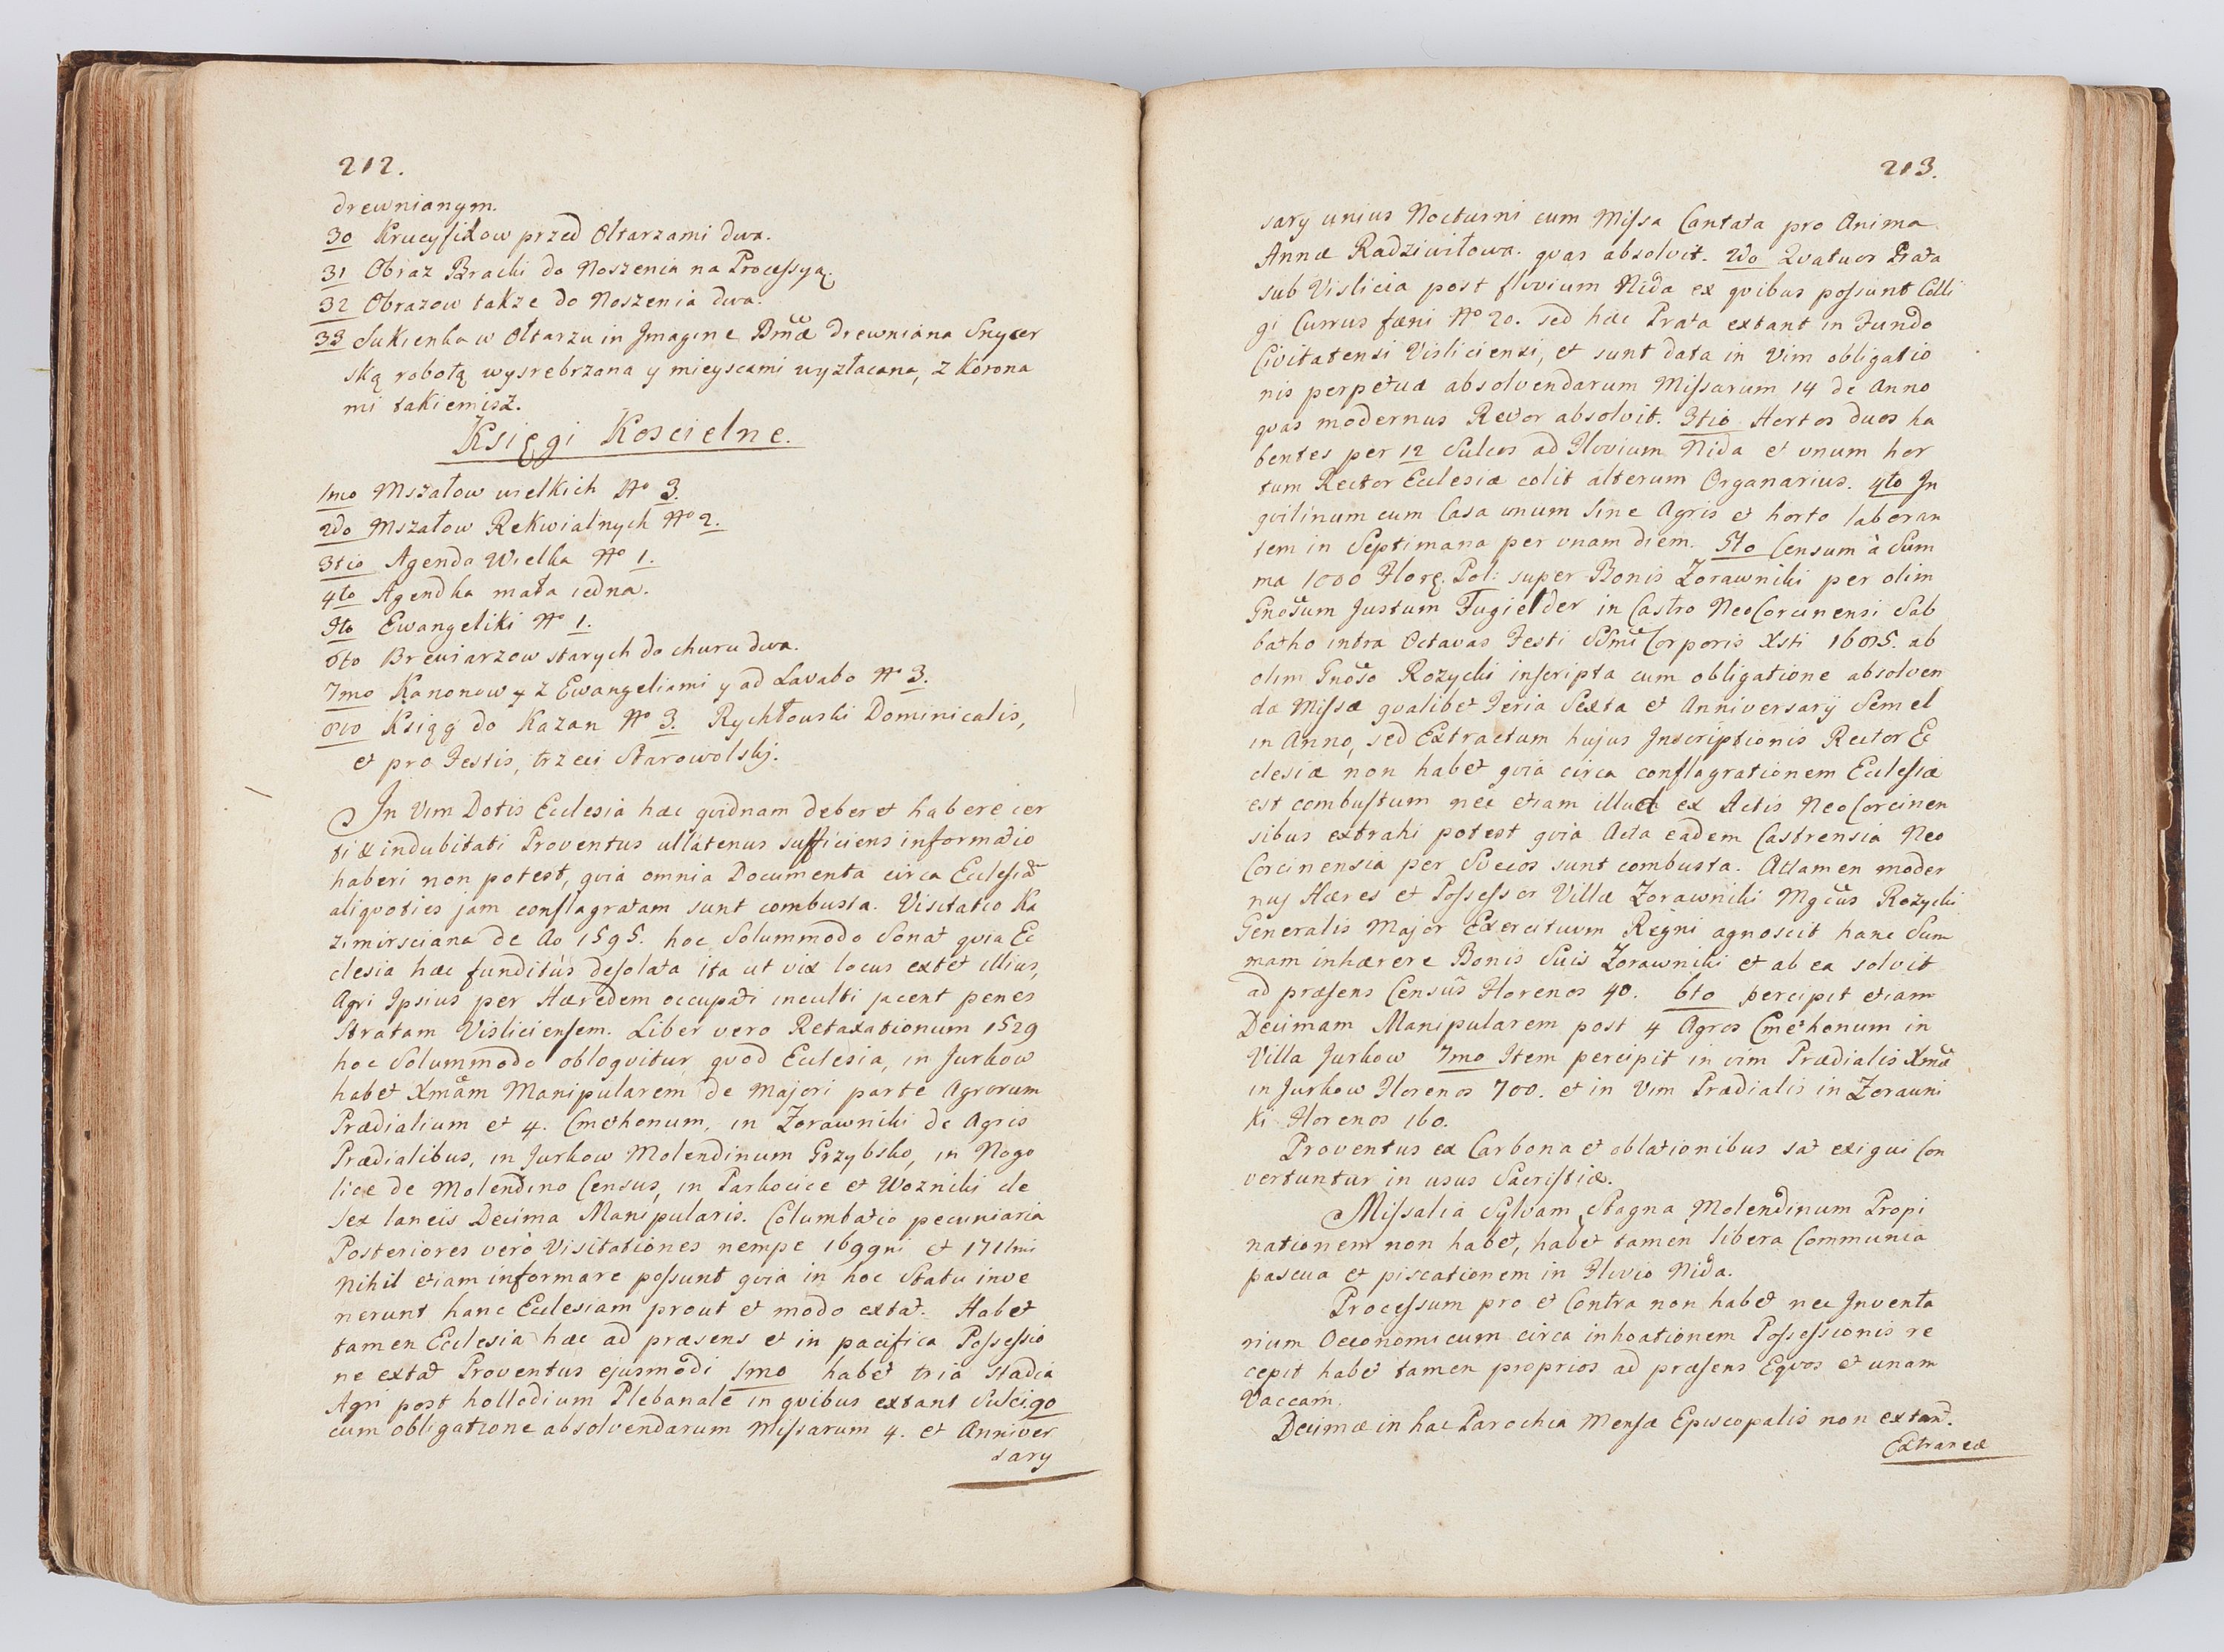 212.
drewnianym.
30 Krucyfixow przed Ołtarzami dwa.
31 Obraz Bracki do Noszenia na Processyą.
32 Obrazow takze do Noszenia dwa.
33 Sukienka w Ołtarzu in Jmagine Bmæ drewniana Snycer
ską robotą wysrebrzana y mieyscami wyzłacana, z Korona
mi takiemisz.
Księgi Koscielne.
1mo Mszałow wielkich No 3.
2do Mszałow Rekwialnych No 2.
3tio Agenda Wielka No 1.
4to Agendka mała iedna.
5to Ewangeliki No 1.
6to Brewiarzow starych do churu dwa.
7mo Kanonow y z Ewangeliami y ad Lavabo No 3.
8vo Ksiąg do Kazan No 3. Rychłouski Dominicalis,
et pro Festis, trzeci Starowolskj.
Jn Vim Dotis Ecclesia hæc qvidnam deberet habere cer
ti & indubitati Proventus ullátenus sufficiens informatio
haberi non potest, qvia omnia Documenta circa Ecclesiã
aliqvoties jam conflagratam sunt combusta. Visitatio Ka
zimirsciana de Ao 1595. hoc Solummodo Sonat qvia Ec
clesia hæc funditùs desolata ita ut vix locus extet illius,
Agri Ipsius per Hæredem occupati inculti jacent penes
Stratam Visliciensem. Liber vero Retaxationum 1529
hoc Solummodo obloqvitur qvod Ecclesia, in Jurkow
habet Xmam Manipularem de Majori parte Agrorum
Prædialium et 4. Cmethonum, in Zorawniki de Agris
Prædialibus, in Jurkow Molendinum Grzybsko, in Nogo
lice de Molendino Census, in Parkocice et Wozniki de
Sex laneis Decima Manipularis. Columbatio pecuniaria
Posteriores verò Visitationes nempe 1699ni et 1711mi
Nihil etiam informare possunt qvia in hoc Statu inve
nerunt hanc Ecclesiam prout et modo extat. Habet
tamen Ecclesia hæc ad præsens et in pacifica Possessio
ne extat Proventus ejusmodi 1mo habet tria stadia
Agri post hollodium Plebanale in qvibus extant Sulci 90
cum obligatione absolvendarum Missarum 4. et Anniver
sary
213.
sary unius Nocturni cum Missa Cantata pro Anima
Annæ Radziwiłowa. qvas absolvit. 2do Qvatuor Prata
sub Vislicia post fluvium Nida ex qvibus possunt Colli
gi Currus fæni No 20. sed hæc Prata extant in Fundo
Civitatensi Visliciensi, et sunt data in vim obligatio
nis perpetuæ absolvendarum Missarum 14 de Anno
qvas modernus Rector absolvit. 3tio Hortos duos ha
bentes per 12 Sulcos ad Fluvium Nida et unum hor
tum Rector Ecclesiæ colit alterum Organarius. 4to Jn
qvilinum cum Casa unum Sine Agris et horto laboran
tem in Septimana per unam diem. 5to Censum à Sum
ma 1000 Flore. Pol: super Bonis Zorawniki per olim
Gnosum Justum Fugielder in Castro NeoCorcinensi Sab
batho intra Octavas Festi SSmi Corporis Xsti 1605. ab
olim Gnoso Rozycki inscripta cum obligatione absolven
da Missæ qvalibet Feria Sexta et Anniversarÿ Semel
in Anno, sed Extractum hujus Jnscriptionis Rector Ec
clesiæ non habet qvia circa conflagrationem Ecclesiæ
est combustum nec etiam illud ex Actis NeoCorcinen
sibus extrahi potest qvia Acta eadem Castrensia Neo
Corcinensia per Svecos sunt combusta. Attamen moder
nus Hæres et Possessor Villæ Zorawniki Mgcus Rozycki
Generalis Major Exercituum Regni agnoscit hanc Sum
mam inhærere Bonis Suis Zorawniki et ab ea solvit
ad præsens Censũs Florenos 40. 6to percipit etiam
Decimam Manipularem post 4 Agros Cmethonum in
Villa Jurkow 7mo Item percipit in vim Prædialis Xmæ
in Jurkow Florenos 700. et in Vim Prædialis in Zorauni
ki Florenos 160.
Proventus ex Carbona et oblationibus sat exigui Con
vertuntur in usus Sacristiæ.
Missalia Sylvam Stagna Molendinum Propi
nationem non habet, habet tamen libera Communia
pascua et piscationem in Fluvio Nida.
Processum pro et Contra non habet nec Jnventa
rium Oeconomicum circa inhoationem Possessionis re
cepit habet tamen proprios ad præsens Eqvos et unam
Vaccam.
Decimæ in hac Parochia Mensæ Episcopalis non extant.
Extraneæ